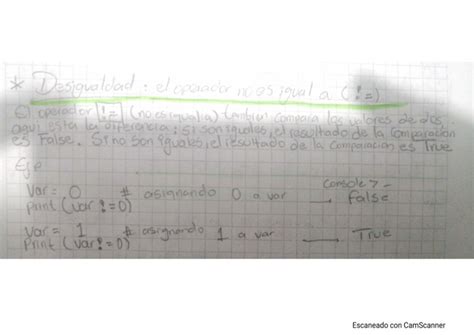 * Desigualdad: el operador no es igual a (!=)
El operador != (no es igual a) tambien compara los valores de dos
aqui esta la diferencia: si son iguales, el resultado de la comparación
es False. Si no son iguales, el resultado de la comparación es True
Eje
Console >-
Var = 0 # asignando 0 a var → False
print (var != 0)
Var = 1 # asignando 1 a var → True
Print (var != 0)
Escaneado con CamScanner